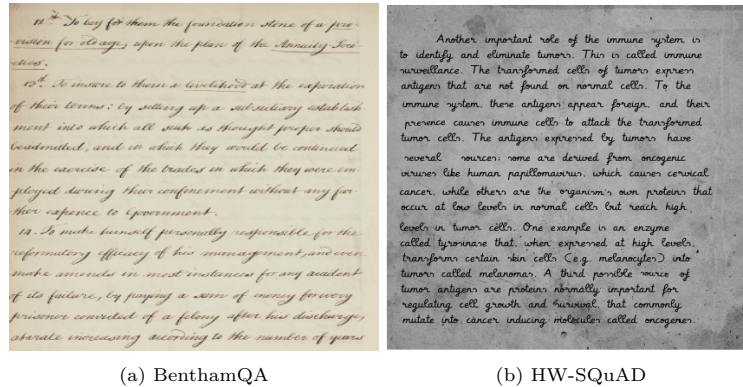 12th To lay for them the foundation stone of a pro-
vision for old age, upon the plan of the Annuity-Soci-
eties.
13th To insure to them a livelihood at the expiration
of their terms: by setting up a subsidiary establish-
ment into which all such as thought proper should
be admitted, and in which they would be continued
in the exercise of the trades in which they were em-
ployed during their confinement without any far-
ther expence to Government.
14. To make himself personally responsible for the
reformatory efficacy of his management, and even
make amends in most instances for any accident
of its failure, by paying a sum of money for every
prisoner convicted of a felony after his discharge,
at a rate increasing according to the number of years
(a) BenthamQA
Another important role of the immune system is
to identify and eliminate tumors. This is called immune
surveillance. The transformed cells of tumors express
antigens that are not found on normal cells. To the
immune system, these antigens appear foreign, and their
presence causes immune cells to attack the transformed
tumor cells. The antigens expressed by tumors have
several sources; some are derived from oncogenic
viruses like human papillomavirus, which causes cervical
cancer, while others are the organism's own proteins that
occur at low levels in normal cells but reach high
levels in tumor cells. One example is an enzyme
called tyrosinase that, when expressed at high levels,
transforms certain skin cells (e.g. melanocytes) into
tumors called melanomas. A third possible source of
tumor antigens are proteins normally important for
regulating cell growth and survival, that commonly
mutate into cancer inducing molecules called oncogenes.
(b) HW-SQuAD